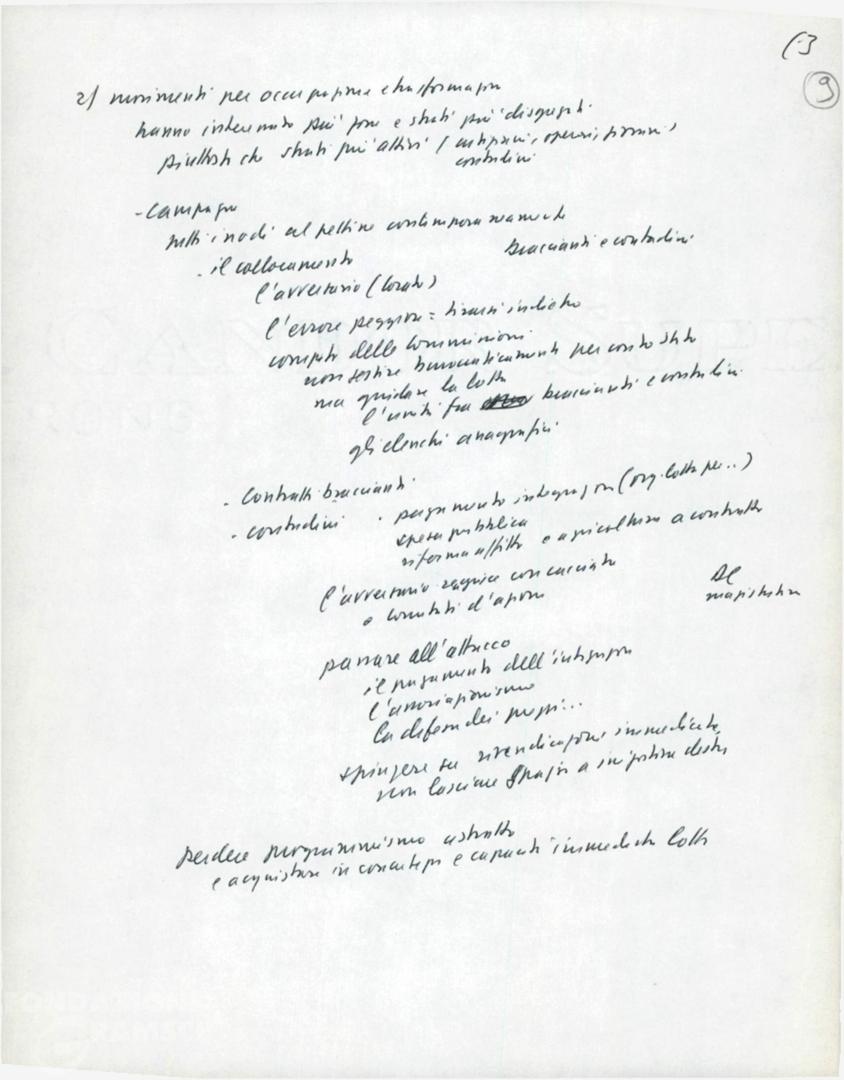 9
2) movimenti per occupazione e trasformazioni
hanno interessato più zone e strati più disgregati
piuttosto che strati più attivi (artigiani, operai, giovani)
contadini
- Campagna
tutti i nodi al pettine contemporaneamente
braccianti e contadini
- il collocamento
l'avversario (Lorato)
l'errore peggiore = tirarsi indietro
compito delle commissioni
non gestire burocraticamente per conto Stato
ma guidare la lotta
l'unità fra braccianti e contadini
gli elenchi anagrafici
- Contratti braccianti
- contadini - pagamento integrazioni (org. lotta per..)
spesa pubblica
riforma affitto e agricoltura a contratto
l'avversario reagisce con
e comitati d'agrari
magistratura
passare all'attacco
il pagamento dell'integrazione
l'associazionismo
la difesa dei prezzi...
spingere su rivendicazioni immediate
non lasciare spazi a iniziativa destra
perdere programmismo astratto
e acquistare in concretezza e capacità immediata lotta